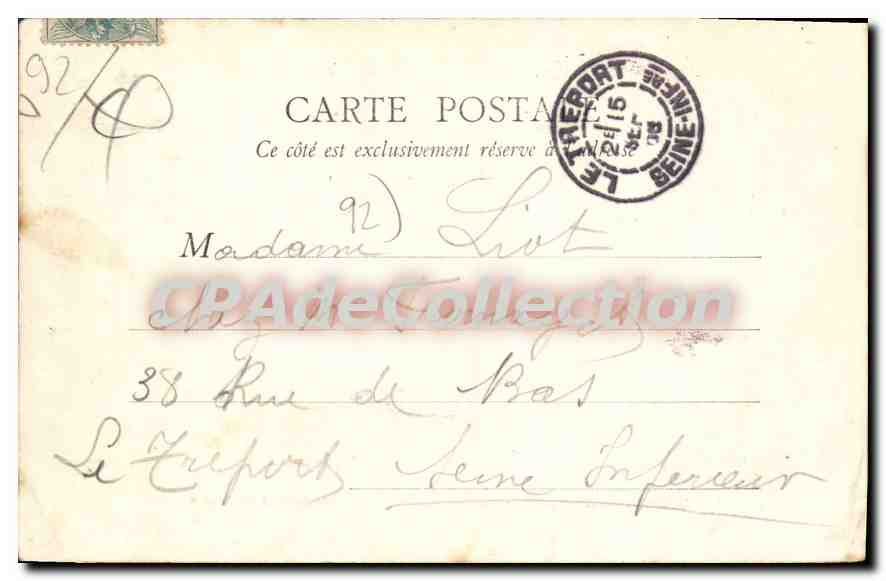 92
CARTE POSTALE
Ce côté est exclusivement réservé à l'adresse
LE TREPORT SEINE-INFRE
2E 15
SEPT
92)
Madame Liot
CPAdeCollection
chez Mr
38 Rue de Bas
Le Treport Seine Inferieur